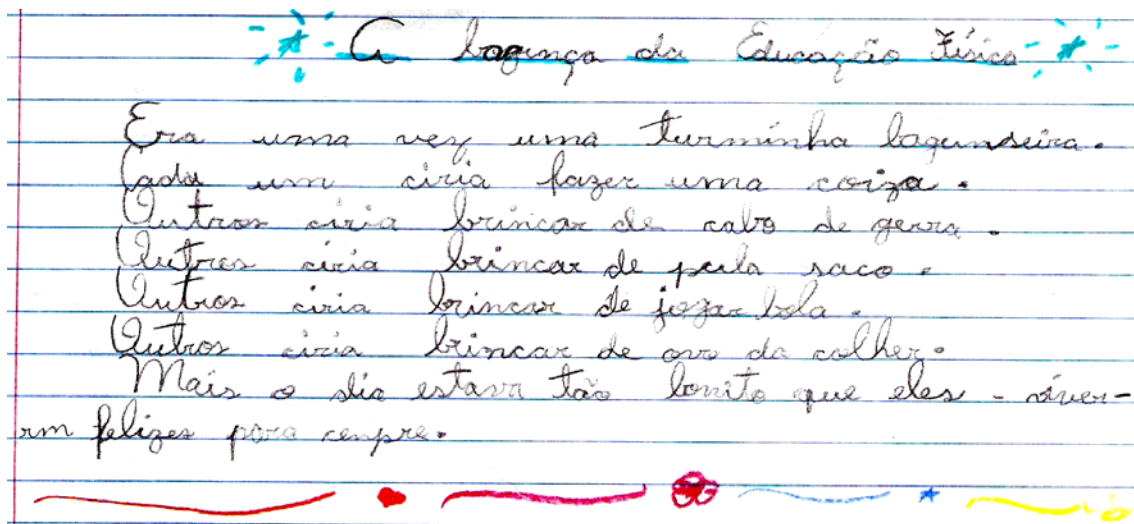 A bagunça da Educação Física
Era uma vez uma turminha bagunseira.
Cada um ciria fazer uma coiza.
Outros ciria brincar de cabo de gerra.
Outros ciria brincar de pula saco.
Outros ciria brincar de jogar bola.
Outros ciria brincar de ovo da colher.
Mais o dia estava tão bonito que eles - viver-
rm felizes para cenpre.